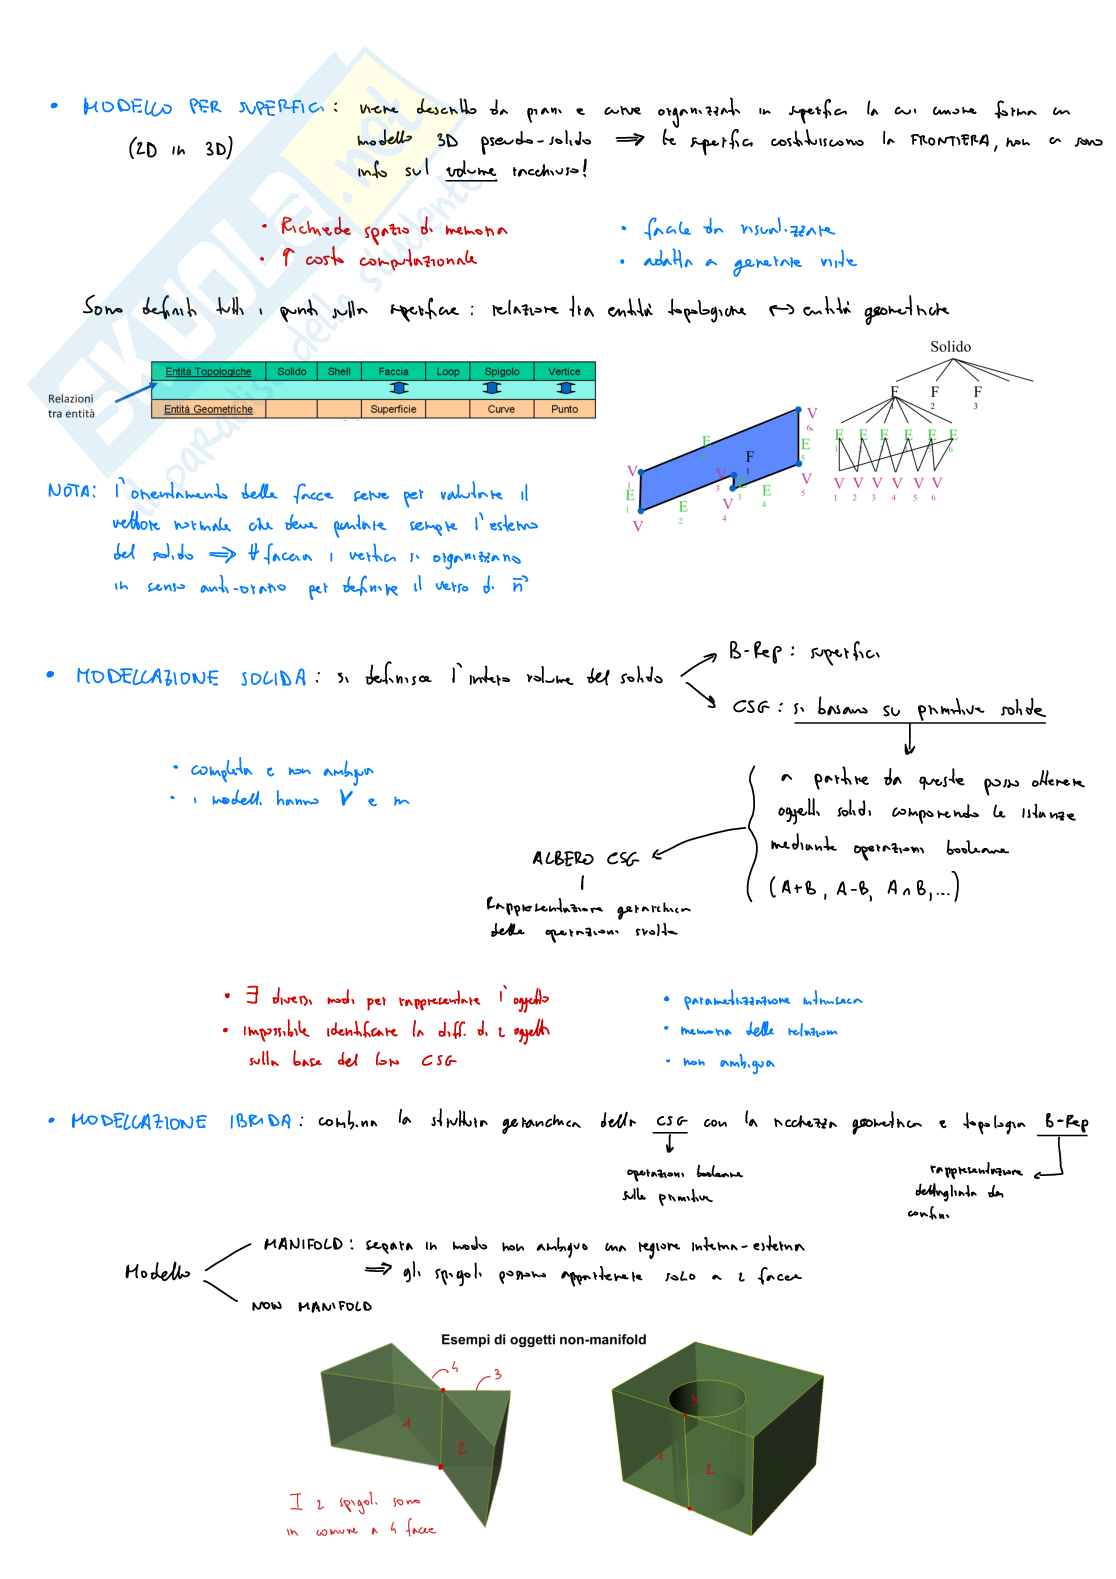 • MODELLO PER SUPERFICI : viene descritto da piani e curve organizzati in superfici la cui unione forma un
(2D in 3D) modello 3D pseudo-solido ⟹ le superfici costituiscono la FRONTIERA, non ci sono
info sul volume racchiuso!
• Richiede spazio di memoria
• ↑ costo computazionale
• facile da visualizzare
• adatta a generare viste
Sono definiti tutti i punti sulla superficie : relazione tra entità topologiche ↔ entità geometriche
Relazioni
tra entità
Entità Topologiche Solido Shell Faccia Loop Spigolo Vertice
Entità Geometriche Superficie Curve Punto
Solido
F1 F2 F3
E1 E E E E E6
V1 V2 V3 V4 V5 V6
V6
E
E5
F1
V1
V3
E3
E1
E2
E4
V5
V4
V
NOTA: l'orientamento delle facce serve per valutare il
vettore normale che deve puntare sempre l'esterno
del solido ⟹ ∀ faccia i vertici si organizzano
in senso anti-orario per definire il verso di n⃗
• MODELLAZIONE SOLIDA : si definisce l'intero volume del solido
B-Rep : superfici
CSG : si basano su primitive solide
• completa e non ambigua
• i modelli hanno V e m
a partire da queste posso ottenere
oggetti solidi componendo le istanze
mediante operazioni booleane
(A+B, A-B, A∩B,...)
ALBERO CSG
Rappresentazione gerarchica
delle operazioni svolte
• ∃ diversi modi per rappresentare l'oggetto
• impossibile identificare la diff. di 2 oggetti
sulla base del loro CSG
• parametrizzazione intrinseca
• memoria delle relazioni
• non ambigua
• MODELLAZIONE IBRIDA : combina la struttura gerarchica della CSG con la ricchezza geometrica e topologia B-Rep
operazioni booleane
sulle primitive
rappresentazione
dettagliata dei
confini
Modello
MANIFOLD : separa in modo non ambiguo una regione interna-esterna
⟹ gli spigoli possono appartenere SOLO a 2 facce
NON MANIFOLD
Esempi di oggetti non-manifold
4
3
1
2
3
1
2
I 2 spigoli sono
in comune a 4 facce
SKUOLA.net
il paradiso dello studente